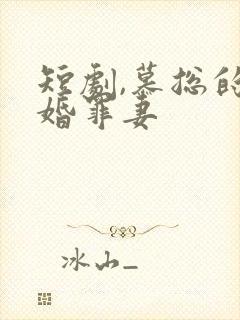 短劇,慕総的
婚罪妻
冰山_